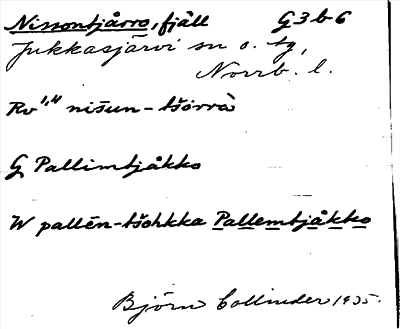 Nissontjårro, fjäll G3b6
Jukkasjärvi sn o. tg,
Norrb. l.
Rv nišun-tšorrà
G Pallimtjåkko
W pallēn-tšohkka Pallemtjåkko
Björn Collinder 1935.